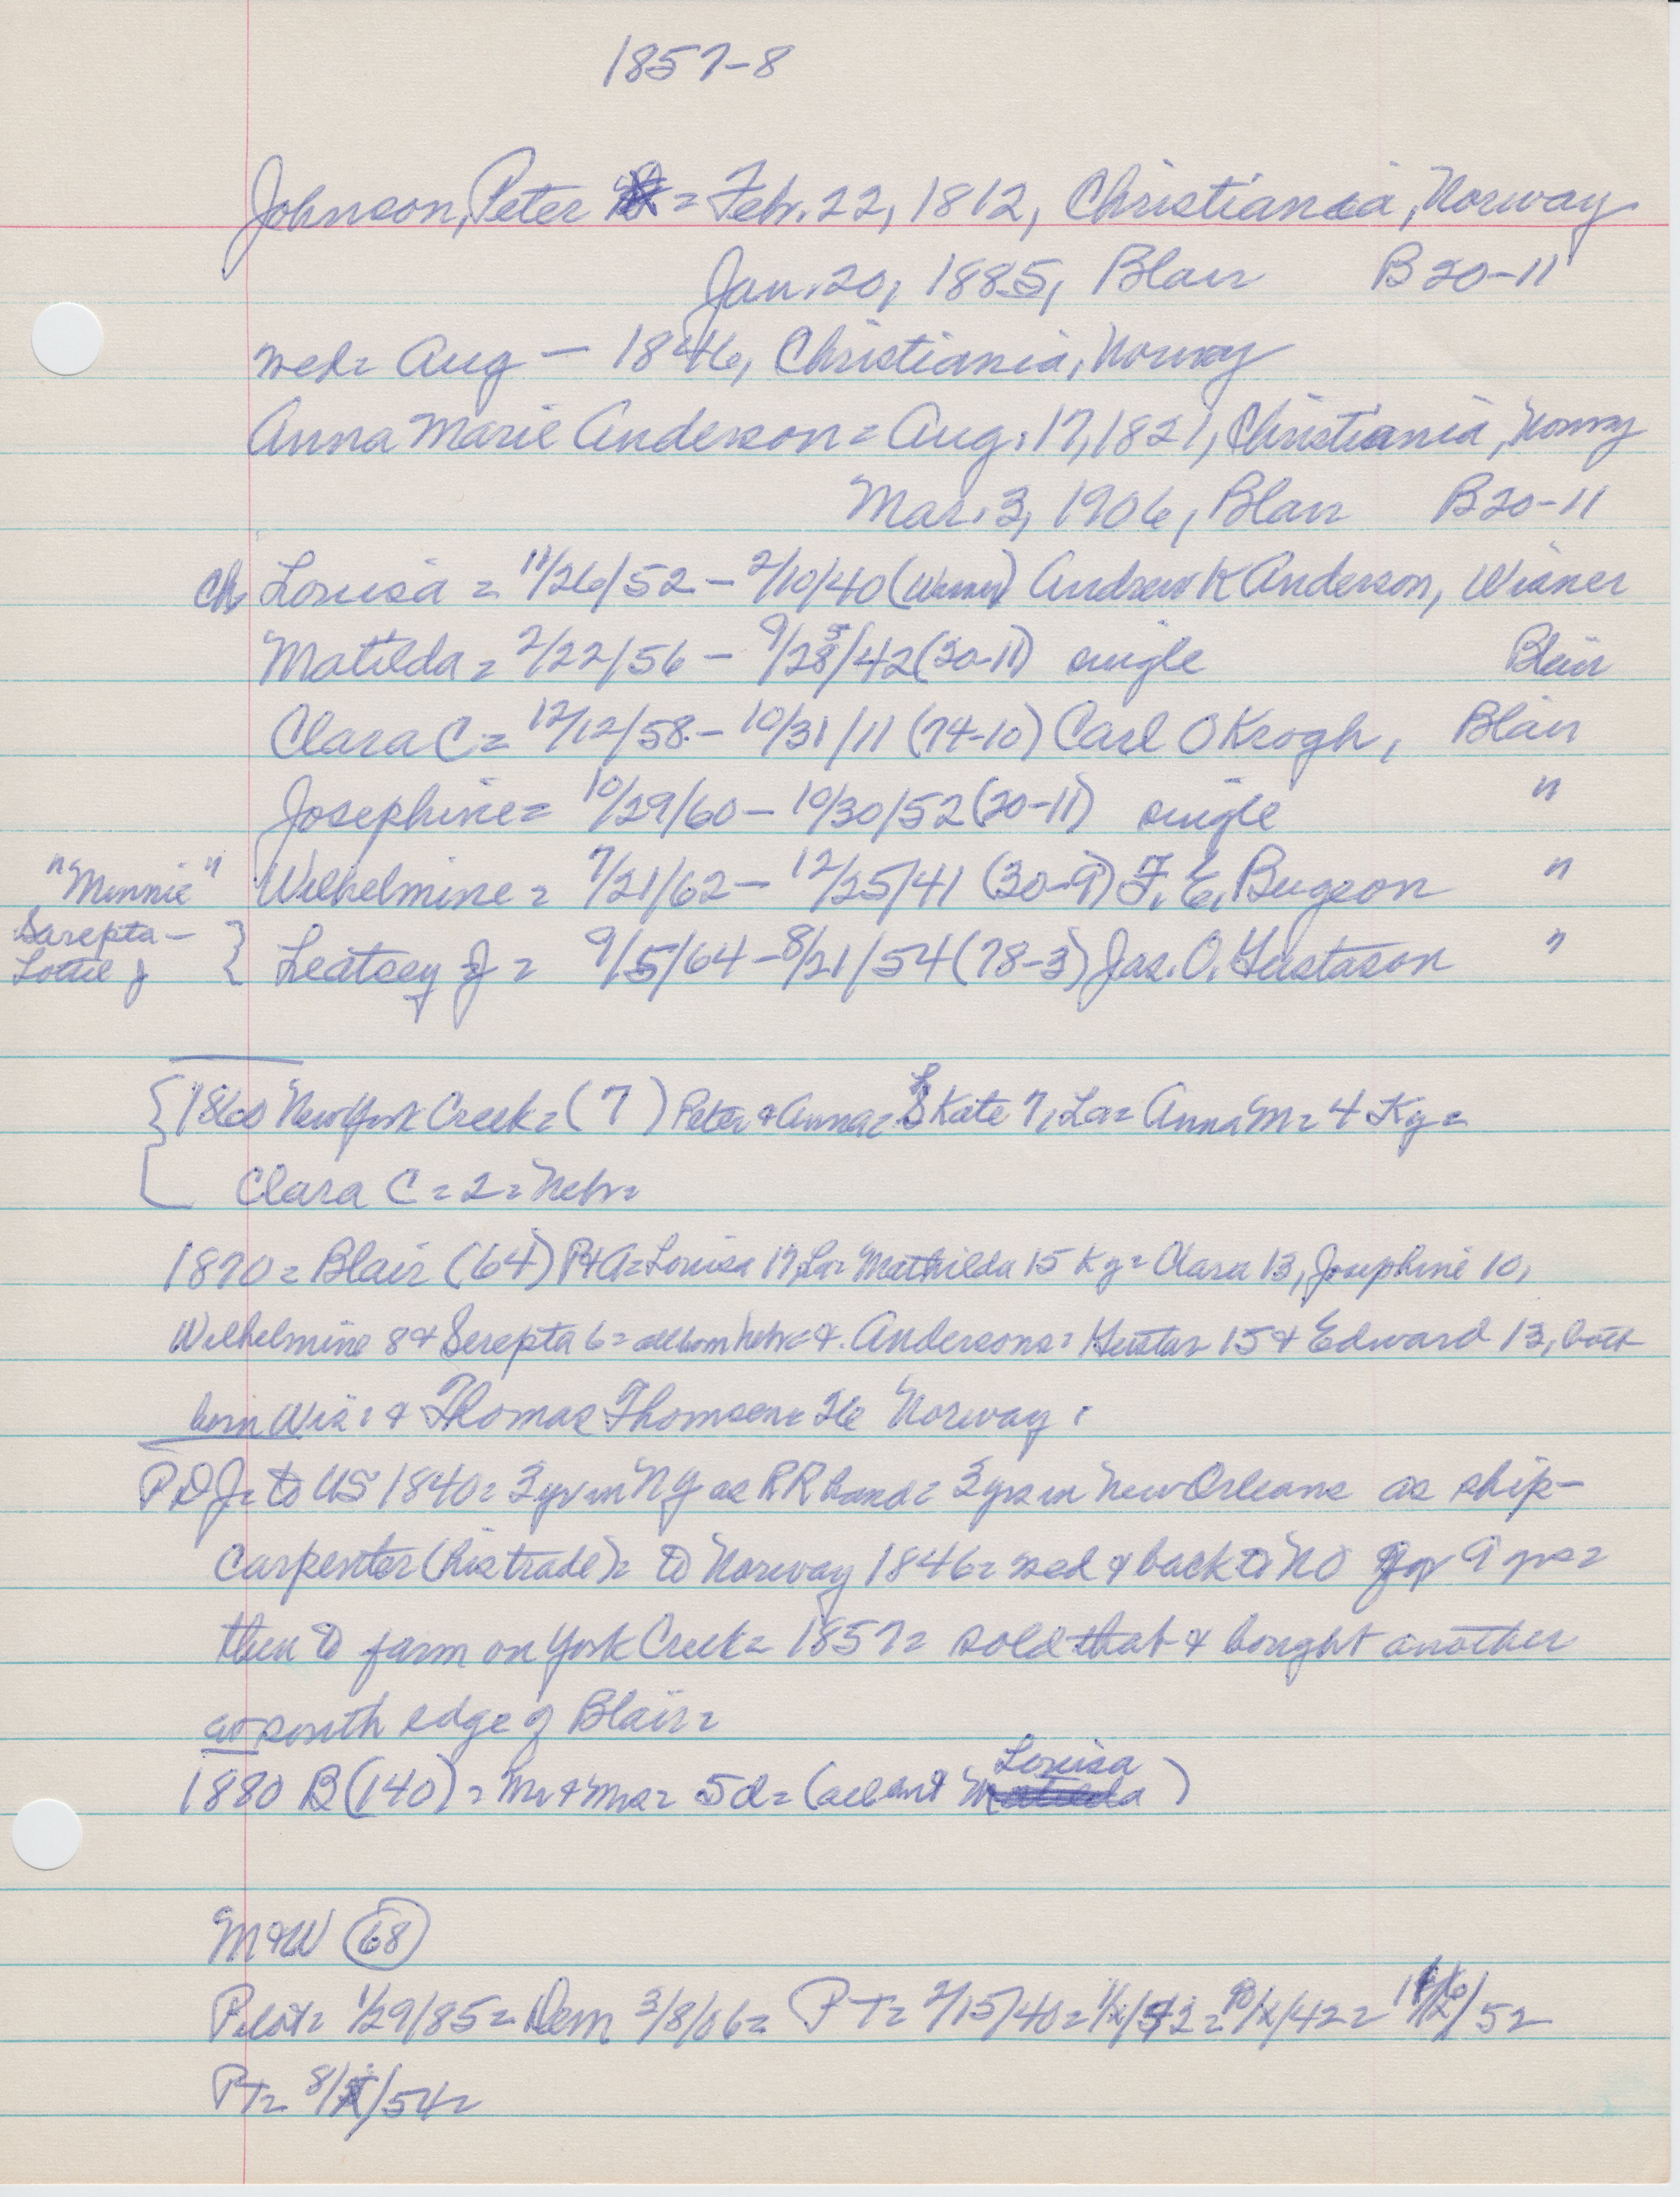 1857-8
Johnson, Peter = Feb. 22, 1812, Christiania, Norway
Jan. 20, 1885, Blair B 20-11
med= Aug — 1846, Christiania, Norway
Anna Marie Anderson = Aug. 17, 1821, Christiania, Norway
Mar. 3, 1906, Blair B 20-11
ch Louisa = 11/26/52 - 2/10/40 (Wisner) Andrew K Anderson, Wisner
Matilda = 2/22/56 - 9/28/42 (20-11) single Blair
Clara C = 12/12/58 - 10/31/11 (74-10) Carl O Krogh, Blair
Josephine = 10/29/60 - 10/30/52 (20-11) single "
"Minnie" Wilhelmine = 7/21/62 - 12/25/41 (30-9) F. E. Bugeon "
Sarepta -
Lottie J } Leatsey J = 9/5/64 - 8/21/54 (78-3) Jas. O. Gustason "
{1860 New York Creek = (7) Peter & Anna = Kate 7, La = Anna M = 4 Ky =
Clara C = 2 = Nebr =
1870 = Blair (64) P & A = Louisa 17, La = Mathilda 15 Ky = Clara 13, Josephine 10,
Wilhelmine 8 & Serepta 6 = all born Nebr = &. Andersons = Gustav 15 & Edward 13, both
born Wis: & Thomas Thomsen = 26 Norway.
P D J = to US 1840 = 3 yr in NY as RR hand = 3 yrs in New Orleans as ship-
carpenter (his trade) = to Norway 1846 = med & back to NO for 9 yrs =
then to farm on York Creek = 1857 = sold that & bought another
at south edge of Blair =
1880 B (140) = Mr & Mrs = 5 d = (all but Louisa)
M & W (68)
Pilot = 1/29/85 = Dem 3/8/06 = PT = 2/15/40 = 1/x/42 = 10/x/42 = /52
PT = 8/ /54 =